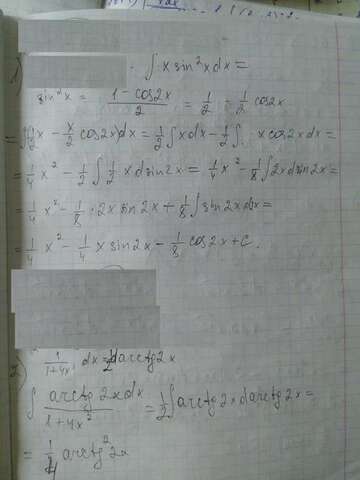 1) ∫ x sin²x dx =
sin²x = (1 - cos2x)/2 = 1/2 - 1/2 cos2x
= ∫(1/2 x - x/2 cos2x)dx = 1/2 ∫ x dx - 1/2 ∫ x cos2x dx =
= 1/4 x² - 1/2 ∫ 1/2 x d sin2x = 1/4 x² - 1/8 ∫ 2x d sin2x =
= 1/4 x² - 1/8 · 2x sin2x + 1/8 ∫ sin2x d2x =
= 1/4 x² - 1/4 x sin2x - 1/8 cos2x + C.
2) 1/(1+4x²) dx = 1/2 d arctg2x
∫ arctg2x dx/(1+4x²) = 1/2 ∫ arctg2x d arctg2x =
= 1/4 arctg²2x